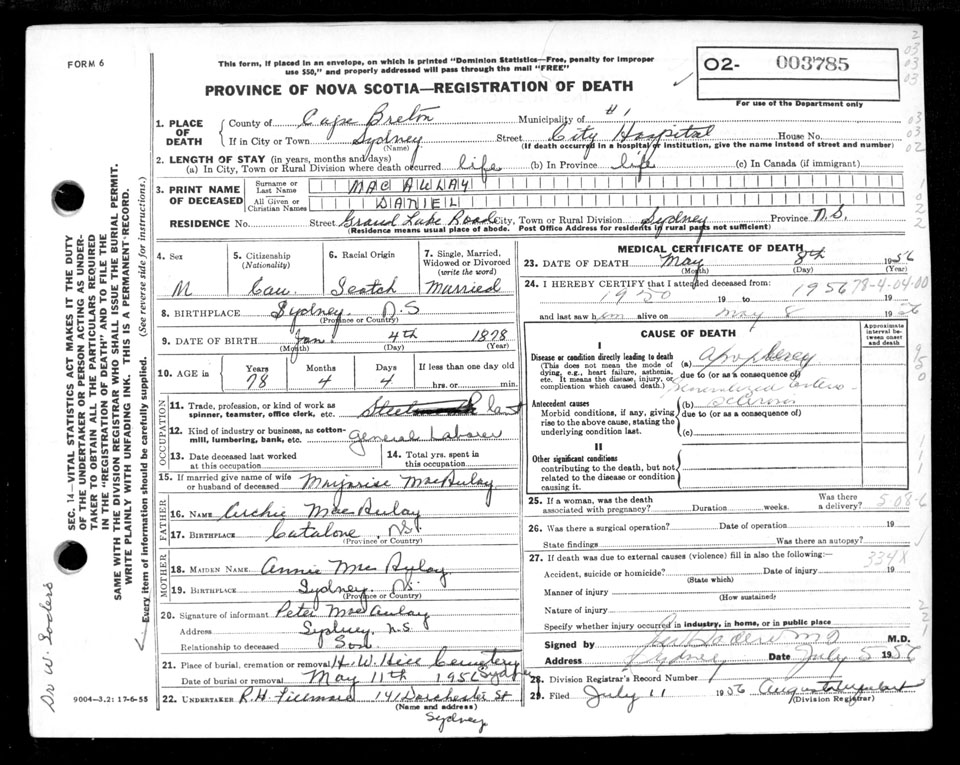 FORM 6
This form, if placed in an envelope, on which is printed "Dominion Statistics—Free, penalty for improper
use $50," and properly addressed will pass through the mail "FREE"
PROVINCE OF NOVA SCOTIA—REGISTRATION OF DEATH
02- 003785
For use of the Department only
1. PLACE OF DEATH
County of Cape Breton Municipality of #1
If in City or Town Sydney Street City Hospital House No.
(Name) (If death occurred in a hospital or institution, give the name instead of street and number)
2. LENGTH OF STAY (in years, months and days)
(a) In City, Town or Rural Division where death occurred life (b) In Province life (c) In Canada (if immigrant)
3. PRINT NAME OF DECEASED
Surname or Last Name MAC AULAY
All Given or Christian Names DANIEL
RESIDENCE No. Street Grand Lake Road City, Town or Rural Division Sydney Province N.S.
(Residence means usual place of abode. Post Office Address for residents in rural parts not sufficient)
4. Sex M
5. Citizenship (Nationality) Can.
6. Racial Origin Scotch
7. Single, Married, Widowed or Divorced (write the word) Married
8. BIRTHPLACE Sydney N.S
(Province or Country)
9. DATE OF BIRTH Jan. 4th 1878
(Month) (Day) (Year)
10. AGE in Years Months Days If less than one day old
78 4 4 hrs. or min.
OCCUPATION
11. Trade, profession or kind of work as spinner, teamster, office clerk, etc. Steel Plant
12. Kind of industry or business, as cotton-mill, lumbering, bank, etc. General Laborer
13. Date deceased last worked at this occupation
14. Total yrs. spent in this occupation
15. If married give name of wife or husband of deceased MacAulay
FATHER
16. NAME Archie MacAulay
17. BIRTHPLACE Catalone, N.S.
(Province or Country)
MOTHER
18. MAIDEN NAME Annie MacAulay
19. BIRTHPLACE Sydney NS
(Province or Country)
20. Signature of informant Peter MacAulay
Address Sydney, N.S
Relationship to deceased Son
21. Place of burial, cremation or removal Cemetery
Sydney
Date of burial or removal May 11th 1956
22. UNDERTAKER R.H. 141 Dorchester St
(Name and address)
Sydney
MEDICAL CERTIFICATE OF DEATH
23. DATE OF DEATH May 8th 1956
(Month) (Day) (Year)
24. I HEREBY CERTIFY that I attended deceased from:
1950 19 to 1956 19
78-4-04-00
and last saw him alive on May 8 1956
CAUSE OF DEATH
Approximate interval between onset and death
I
Disease or condition directly leading to death
(This does not mean the mode of dying, e.g., heart failure, asthma, etc. It means the disease, injury, or complication which caused death.)
(a) Apoplexy
due to (or as a consequence of)
Generalized arterio-
Antecedent causes
Morbid conditions, if any, giving rise to the above cause, stating the underlying condition last.
(b) sclerosis
due to (or as a consequence of)
(c)
II
Other significant conditions
contributing to the death, but not related to the disease or condition causing it.
25. If a woman, was the death associated with pregnancy? Duration weeks. Was there a delivery?
508-6
26. Was there a surgical operation? Date of operation 19
State findings Was there an autopsy?
27. If death was due to external causes (violence) fill in also the following:—
334X
Accident, suicide or homicide? Date of injury 19
(State which)
Manner of injury
(How sustained)
Nature of injury
Specify whether injury occurred in industry, in home, or in public place
Signed by M.D.
Address Sydney Date July 5 1956
28. Division Registrar's Record Number
29. Filed July 11 1956
(Division Registrar)
SEC. 14—VITAL STATISTICS ACT MAKES IT THE DUTY
OF THE UNDERTAKER OR PERSON ACTING AS UNDER-
TAKER TO OBTAIN ALL THE PARTICULARS REQUIRED
IN THE "REGISTRATION OF DEATH" AND TO FILE THE
SAME WITH THE DIVISION REGISTRAR WHO SHALL ISSUE THE BURIAL PERMIT.
WRITE PLAINLY WITH UNFADING INK. THIS IS A PERMANENT RECORD.
Every item of information should be carefully supplied. (See reverse side for instructions.)
Dr W.
9004—3.2: 17-6-55